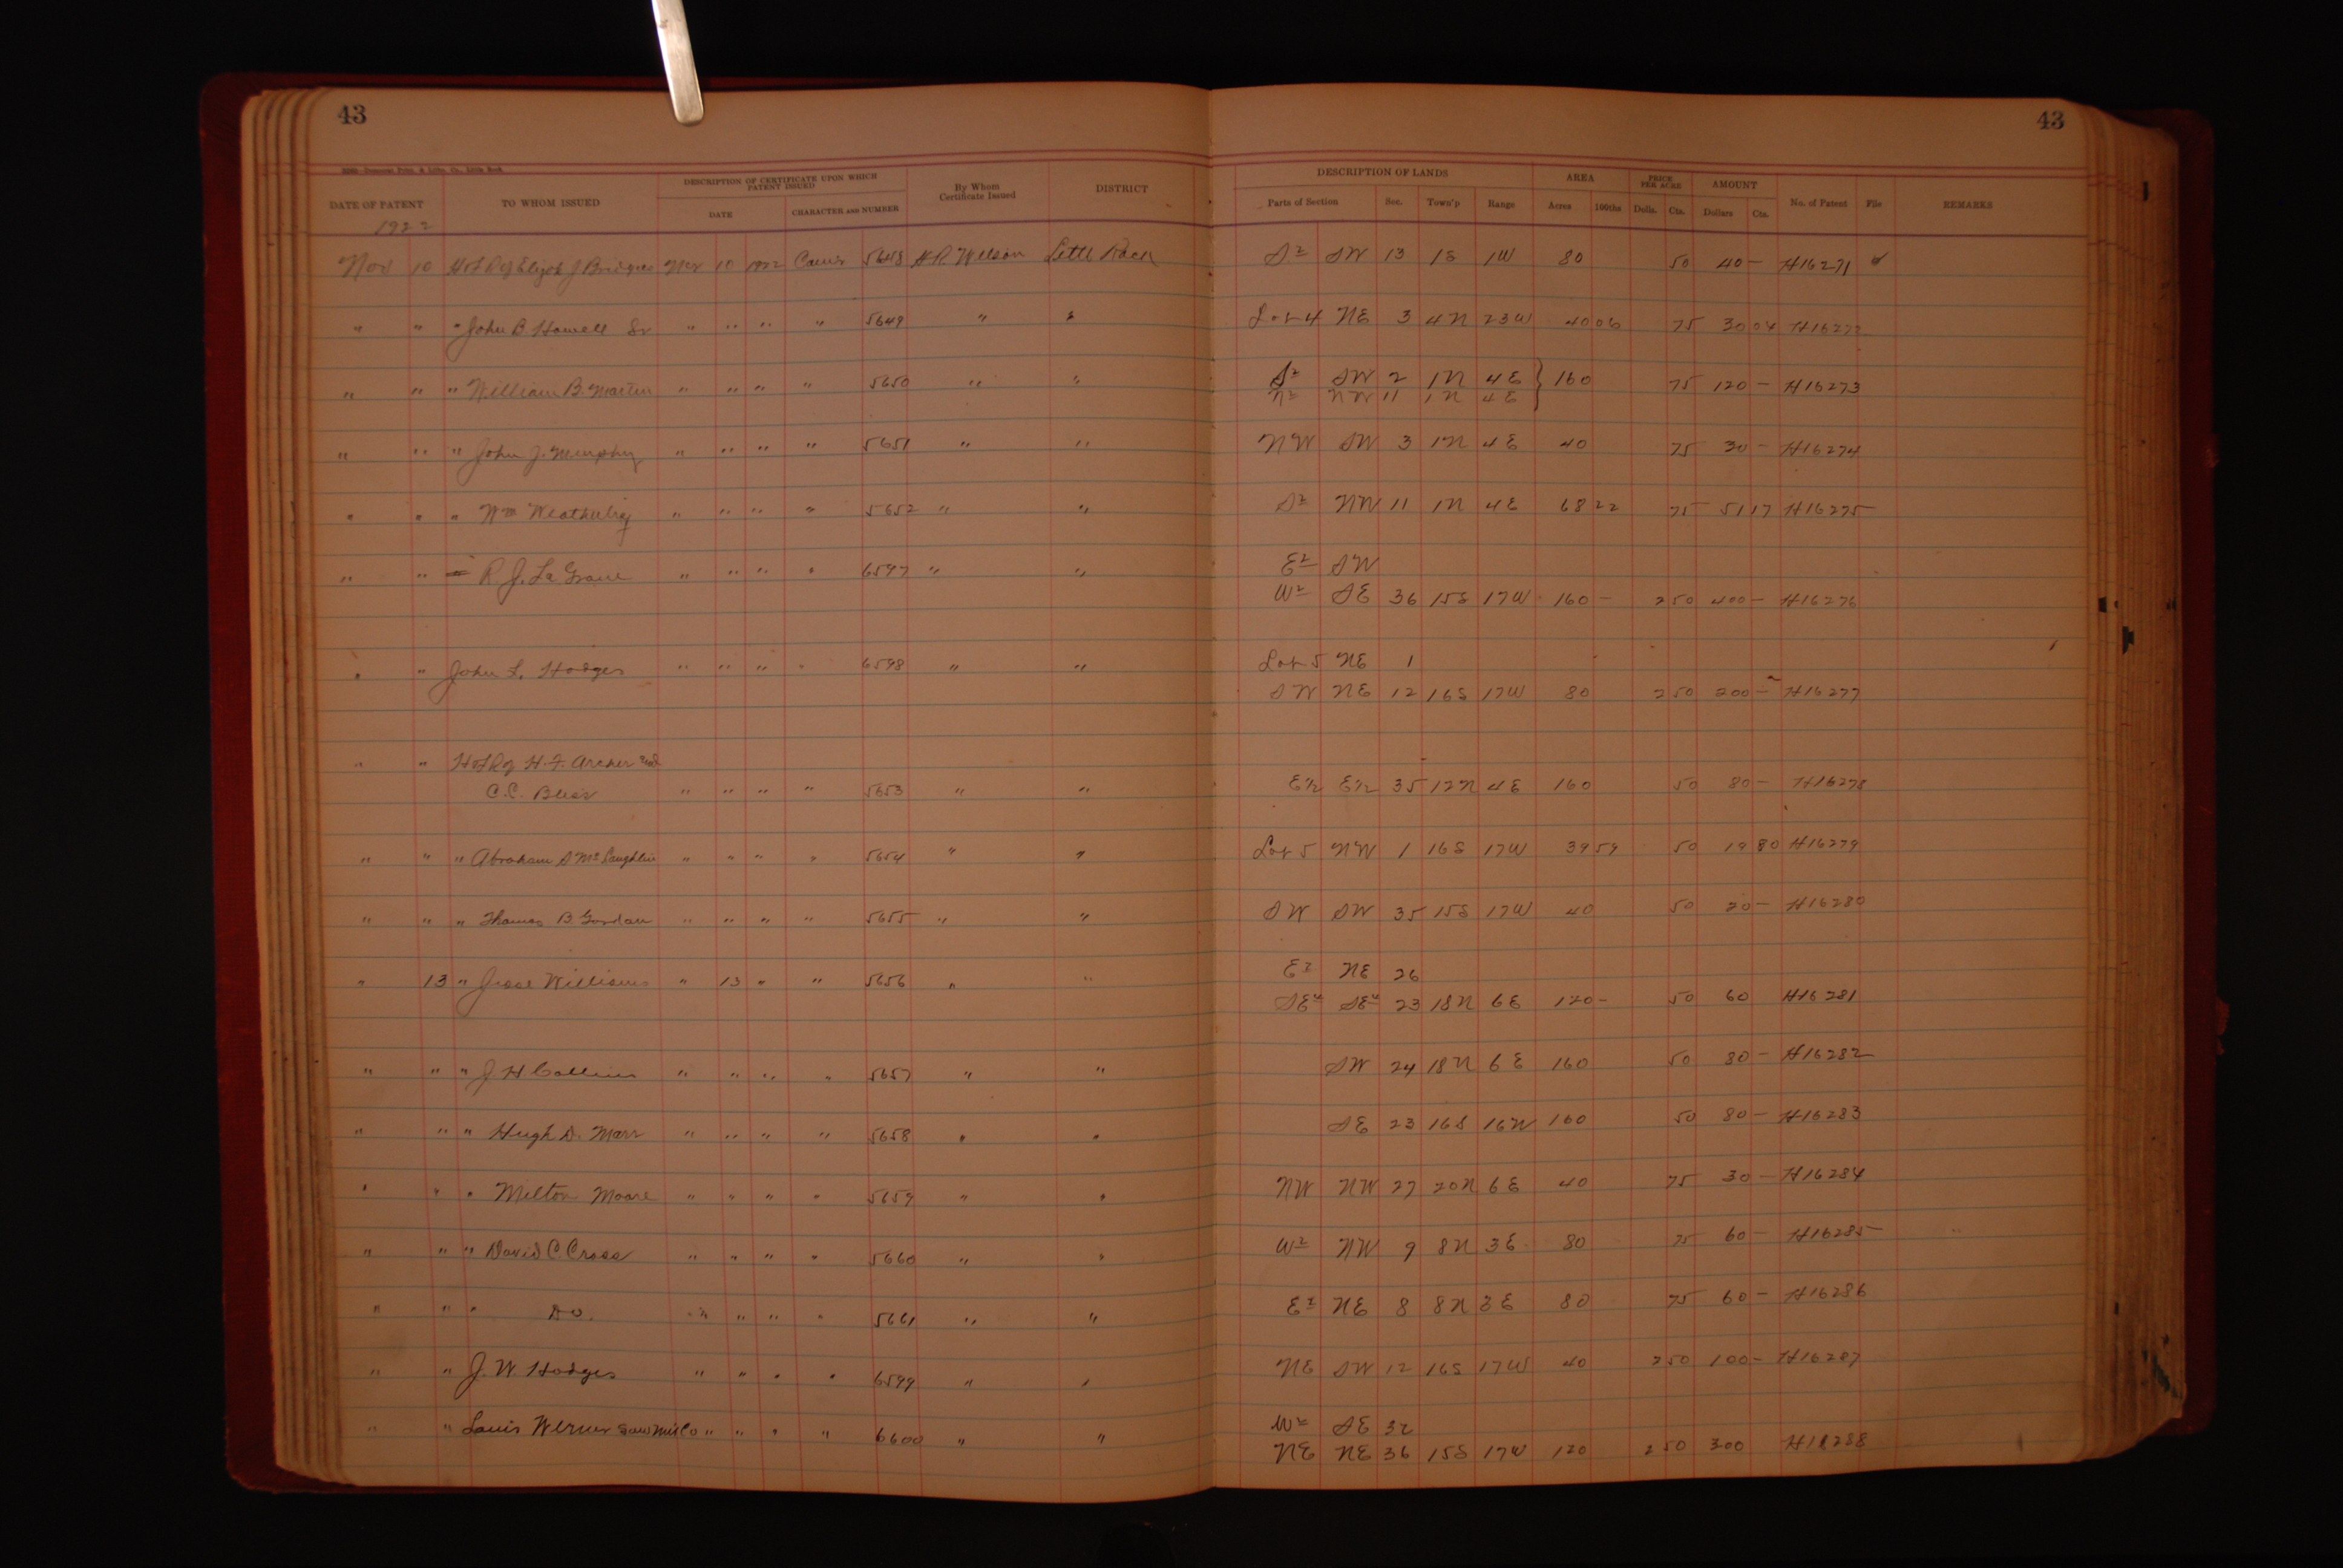 43 43
DATE OF PATENT TO WHOM ISSUED DESCRIPTION OF CERTIFICATE UPON WHICH PATENT ISSUED DATE CHARACTER AND NUMBER By Whom Certificate Issued DISTRICT DESCRIPTION OF LANDS Parts of Section Sec. Town'p Range AREA Acres 100ths PRICE PER ACRE Dolls. Cts. AMOUNT Dollars Cts. No. of Patent File REMARKS
1922
Nov 10 H&LR of Elijah J Bridges Nov 10 1922 5648 H.R. Wilson Little Rock S2 SW 13 1S 1W 80 50 40 — H16271
" " " John B. Howell Sr " " " " 5649 " " Lot 4 NE 3 4N 23W 40 06 75 30 04 H16272
" " " William B. Martin " " " " 5650 " " S2 SW 2 1N 4E } 160 75 120 — H16273
N2 NW 11 1N 4E
" " " John J. Murphy " " " " 5651 " " NW SW 3 1N 4E 40 75 30 — H16274
" " " Wm " " " " 5652 " " S2 NW 11 1N 4E 68 22 75 51 17 H16275
" " R. J. La Grone " " " " 6597 " " E2 SW
W2 SE 36 15S 17W 160 — 2 50 400 — H16276
" " John L. Hodges " " " " 6598 " " Lot 5 NE 1
SW NE 12 16S 17W 80 2 50 200 — H16277
" " H&LR of H. F. Archer and
C.C. Bliss " " " " 5653 " " E½ E½ 35 12N 4E 160 50 80 — H16278
" " " Abraham S McLaughlin " " " " 5654 " " Lot 5 NW 1 16S 17W 39 59 50 19 80 H16279
" " " Thomas B. Gordan " " " " 5655 " " SW SW 35 15S 17W 40 50 20 — H16280
" 13 " Jesse Williams " 13 " " 5656 " " E2 NE 26
SE4 SE4 23 18N 6E 120 — 50 60 H16281
" " " J. H. Collins " " " " 5657 " " SW 24 18N 6E 160 50 80 — H16282
" " " Hugh D. Marr " " " " 5658 " " SE 23 16S 16W 160 50 80 — H16283
" " " Milton Moore " " " " 5659 " " NW NW 27 20N 6E 40 75 30 — H16284
" " " David C Cross " " " " 5660 " " W2 NW 9 8N 3E 80 75 60 — H16285
" " " Do. " " " " 5661 " " E2 NE 8 8N 3E 80 75 60 — H16286
" " J. W. Hodges " " " " 6599 " " NE SW 12 16S 17W 40 2 50 100 — H16287
" " Louis Werner Saw Mill Co " " " " 6600 " " W2 SE 32
NE NE 36 15S 17W 120 2 50 300 H16288